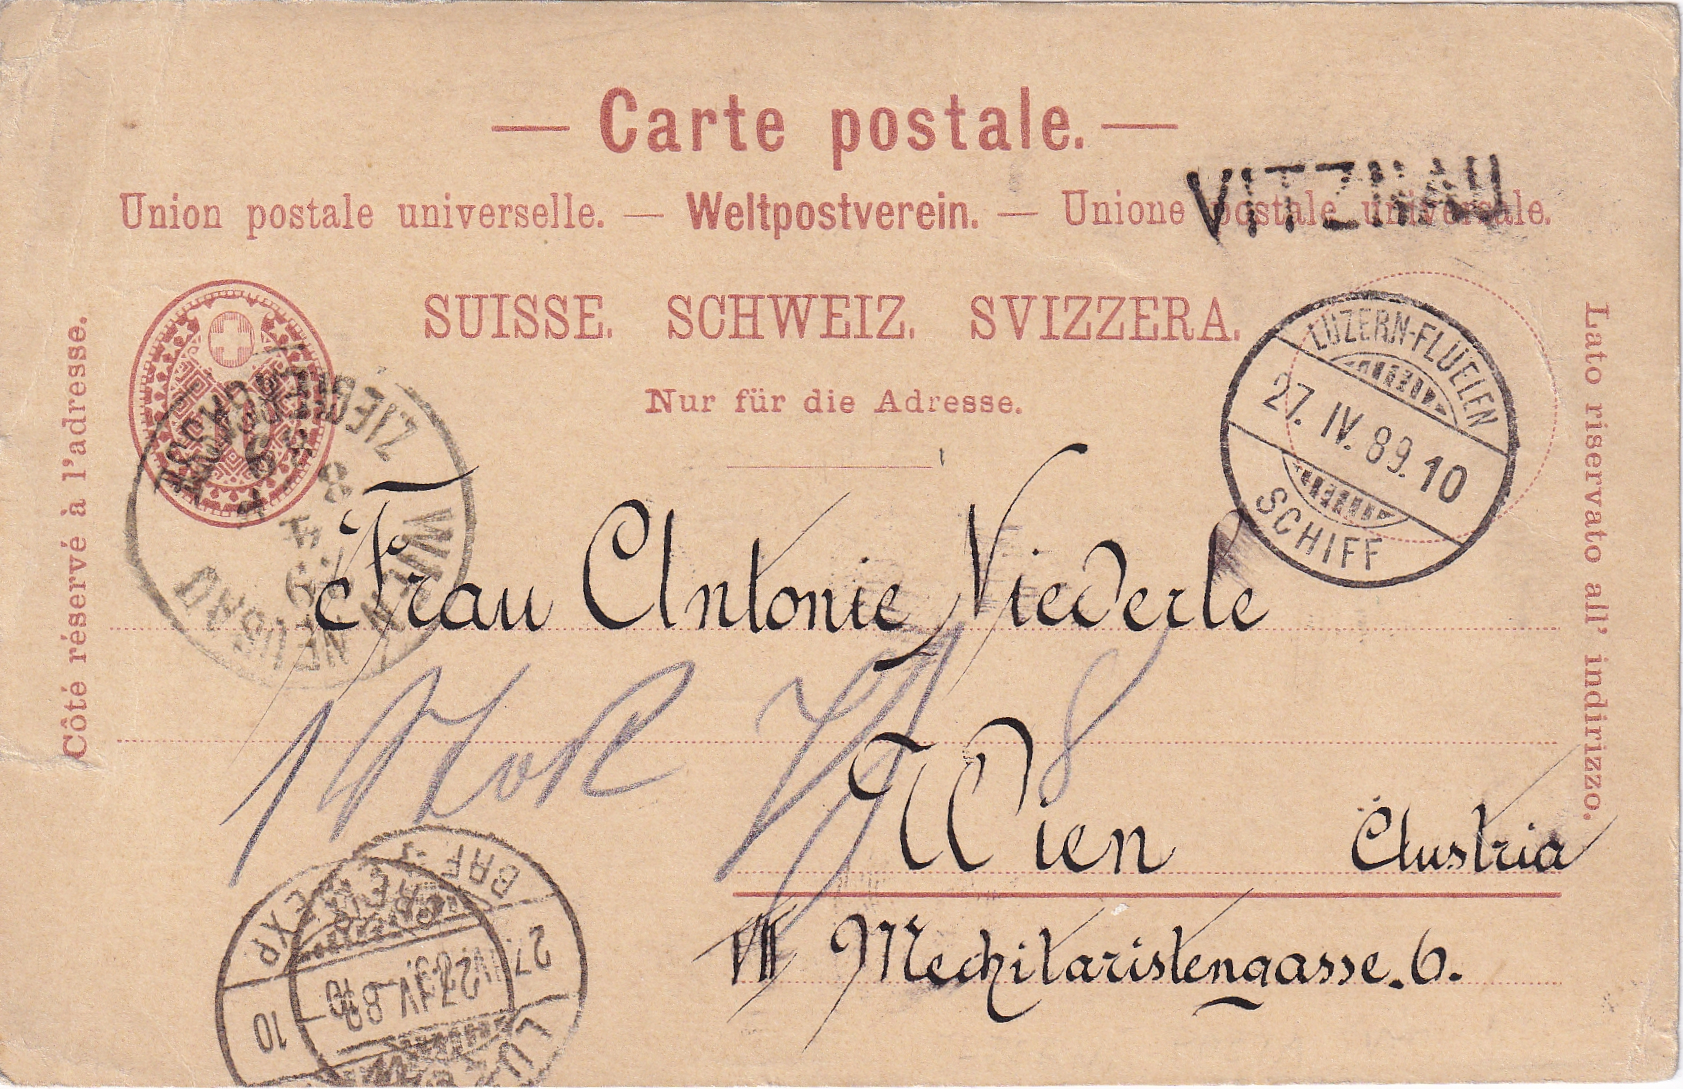 — Carte postale. —
VITZNAU
Union postale universelle. — Weltpostverein. — Unione postale universale.
SUISSE. SCHWEIZ. SVIZZERA.
Nur für die Adresse.
Côté réservé à l'adresse.
Lato riservato all' indirizzo.
LUZERN-FLUELEN
27. IV. 89. 10
SCHIFF
WIEN NEUBAU
Frau Antonie Niederle
Wien Austria
VII Mechitaristengasse. 6.
BRF. EXP.
27. IV. 89
10